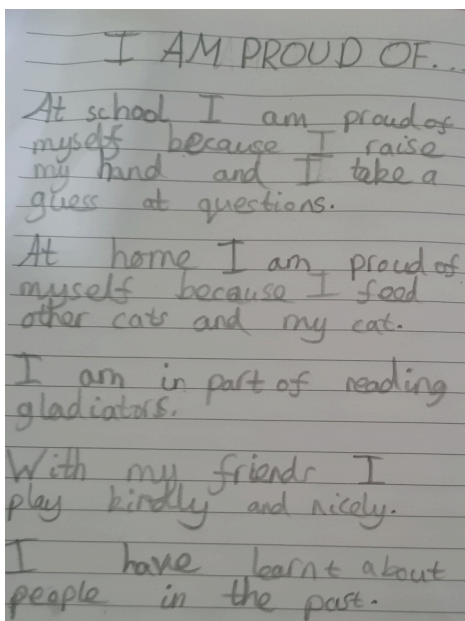 I AM PROUD OF...
At school I am proud of
myself because I raise
my hand and I take a
guess at questions.
At home I am proud of
myself because I food
other cats and my cat.
I am in part of reading
gladiators.
With my friends I
play kindly and nicely.
I have learnt about
people in the past.